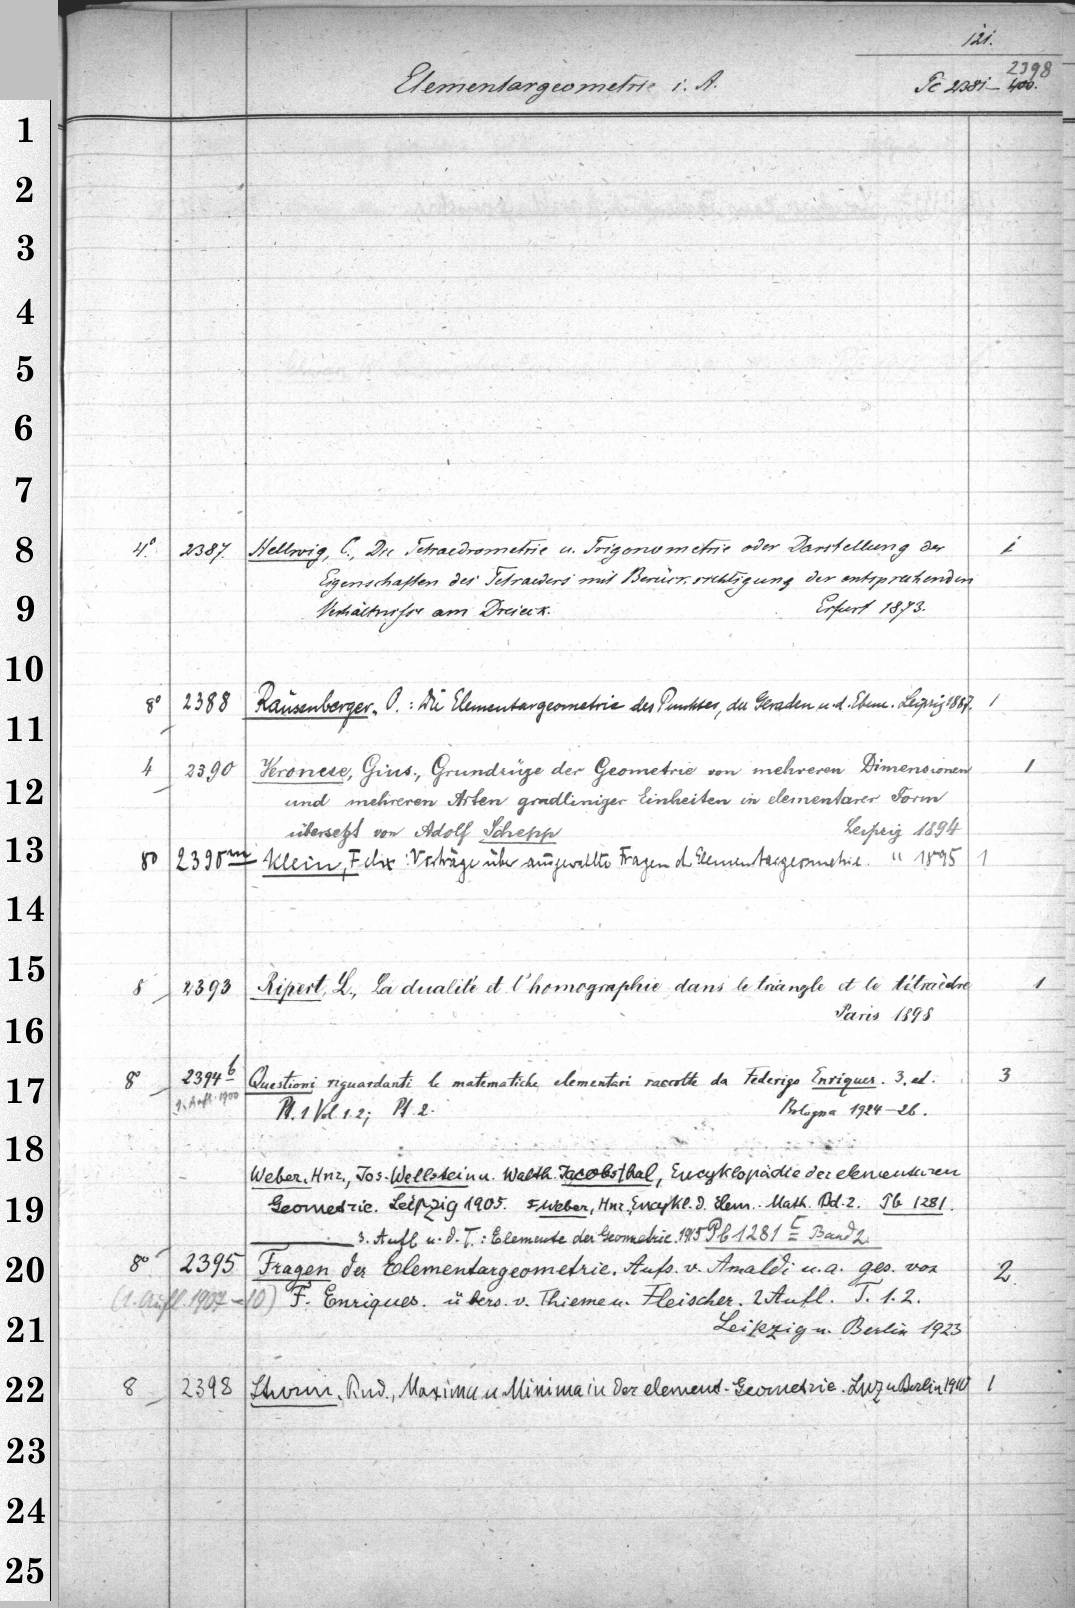 121.
Elementargeometrie i. A. Pc 2381 – 400. 2398
4° 2387. Hellwig, C., Die Tetraedrometrie u. Trigonometrie oder Darstellung der 1
Eigenschaften des Tetraeders mit Berücksichtigung der entsprechenden
Verhältnisse am Dreieck. Erfurt 1873.
8° 2388 Rausenberger, O.: Die Elementargeometrie des Punktes, der Geraden u. d. Ebene. Leipzig 1887. 1
4 2390 Veronese, Gius., Grundzüge der Geometrie von mehreren Dimensionen 1
und mehreren Arten gradliniger Einheiten in elementarer Form
übersetzt von Adolf Schepp Leipzig 1894
8° 2390m Klein, Felix: Vorträge über ausgewählte Fragen d. Elementargeometrie. " 1895 1
8 2393 Ripert, L., La dualité et l'homographie dans le triangle et le tétraèdre 1
Paris 1898
8° 2394b Questioni riguardanti le matematiche elementari raccolte da Federigo Enriques. 3. ed. 3
1. Aufl. 1900 Pt. 1 Vol. 1. 2; Pt. 2. Bologna 1924–26.
Weber, Hnr., Jos. Wellstein u. Walth. Jacobsthal, Encyklopädie der elementaren
Geometrie. Leipzig 1905. = Weber, Hnr. Encykl. d. Elem. Math. Bd. 2. Pb 1281.
3. Aufl. u. d. T.: Elemente der Geometrie. 1915 Pb 1281 c Band 2
8° 2395 Fragen der Elementargeometrie. Aufs. v. Amaldi u. a. ges. von 2.
(1. Aufl. 1907–10) F. Enriques. übers. v. Thieme u. Fleischer. 2 Aufl. T. 1. 2.
Leipzig u. Berlin 1923
8 2398 Sturm, Rud., Maxima u Minima in der element. Geometrie. Lpz u Berlin 1910 1
1
2
3
4
5
6
7
8
9
10
11
12
13
14
15
16
17
18
19
20
21
22
23
24
25